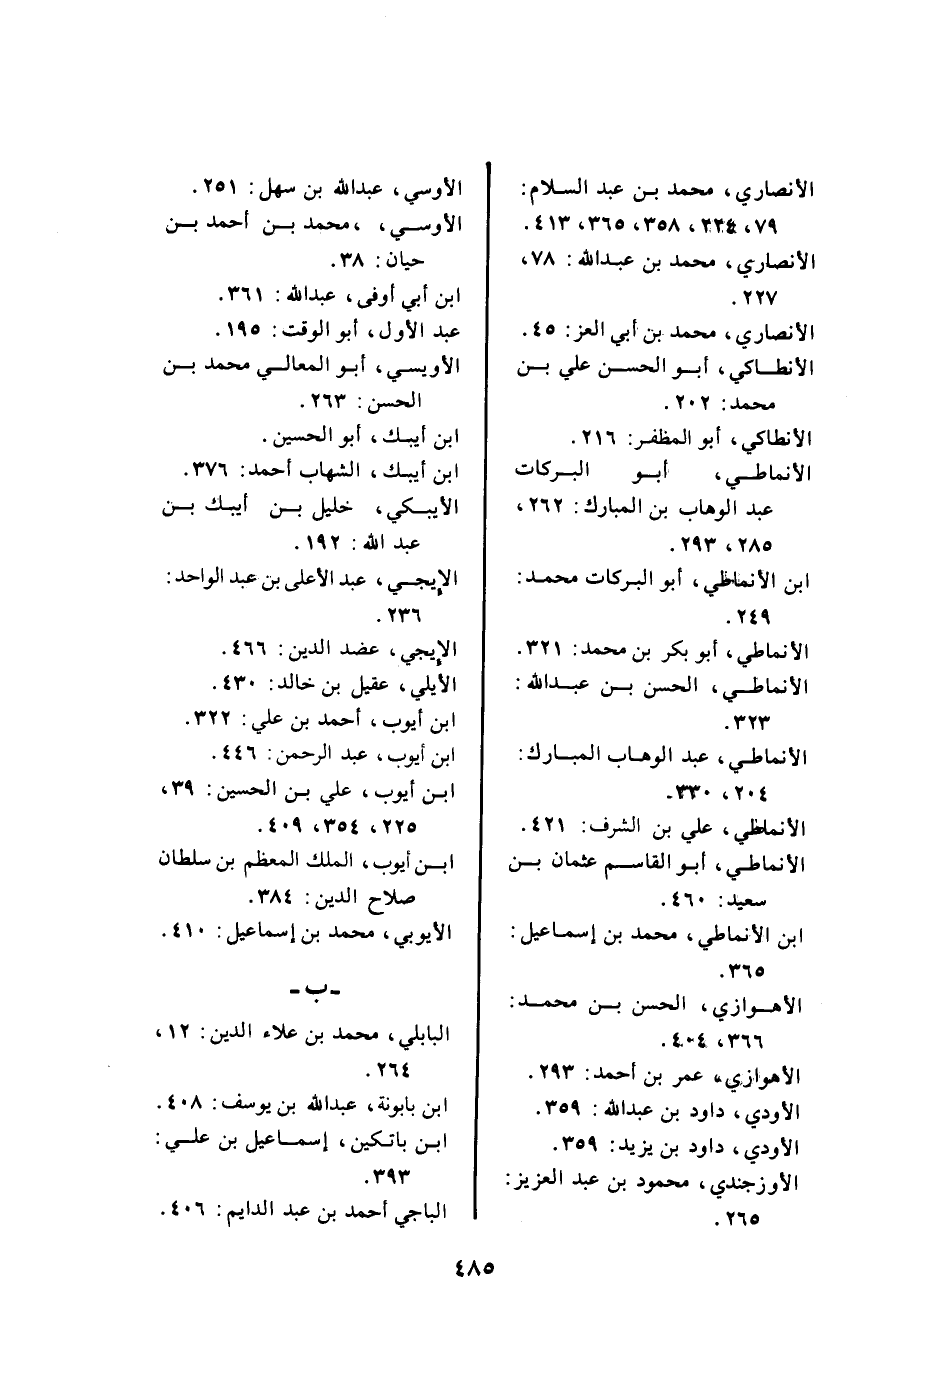 الأنصاري، محمد بن عبد السلام:
٧٩، ٢٢٤، ٣٥٨، ٣٦٥، ٤١٣.
الأنصاري، محمد بن عبدالله: ٧٨،
٢٢٧.
الأنصاري، محمد بن أبي العز: ٤٥.
الأنطاكي، أبو الحسن علي بن
محمد: ٢٠٢.
الأنطاكي، أبو المظفر: ٢١٦.
الأنماطي، أبو البركات
عبد الوهاب بن المبارك: ٢٦٢،
٢٨٥، ٢٩٣.
ابن الأنماطي، أبو البركات محمد:
٢٤٩.
الأنماطي، أبو بكر بن محمد: ٣٢١.
الأنماطي، الحسن بن عبدالله:
٣٢٣.
الأنماطي، عبد الوهاب المبارك:
٢٠٤، ٣٣٠.
الأنماطي، علي بن الشرف: ٤٢١.
الأنماطي، أبو القاسم عثمان بن
سعيد: ٤٦٠.
ابن الأنماطي، محمد بن إسماعيل:
٣٦٥.
الأهوازي، الحسن بن محمد:
٣٦٦، ٤٠٤.
الأهوازي، عمر بن أحمد: ٢٩٣.
الأودي، داود بن عبدالله: ٣٥٩.
الأودي، داود بن يزيد: ٣٥٩.
الأوزجندي، محمود بن عبد العزيز:
٢٦٥.
الأوسي، عبدالله بن سهل: ٢٥١.
الأوسي، ،محمد بن أحمد بن
حيان: ٣٨.
ابن أبي أوفى، عبدالله: ٣٦١.
عبد الأول، أبو الوقت: ١٩٥.
الأويسي، أبو المعالي محمد بن
الحسن: ٢٦٣.
ابن أيبك، أبو الحسين.
ابن أيبك، الشهاب أحمد: ٣٧٦.
الأيبكي، خليل بن أيبك بن
عبد الله: ١٩٢.
الإيجي، عبد الأعلى بن عبد الواحد:
٢٣٦.
الإيجي، عضد الدين: ٤٦٦.
الأيلي، عقيل بن خالد: ٤٣٠.
ابن أيوب، أحمد بن علي: ٣٢٢.
ابن أيوب، عبد الرحمن: ٤٤٦.
ابن أيوب، علي بن الحسين: ٣٩،
٢٢٥، ٣٥٤، ٤٠٩.
ابن أيوب، الملك المعظم بن سلطان
صلاح الدين: ٣٨٤.
الأيوبي، محمد بن إسماعيل: ٤١٠.
- ب -
البابلي، محمد بن علاء الدين: ١٢،
٢٦٤.
ابن بابونة، عبدالله بن يوسف: ٤٠٨.
ابن باتكين، إسماعيل بن علي:
٣٩٣.
الباجي أحمد بن عبد الدايم: ٤٠٦.
٤٨٥